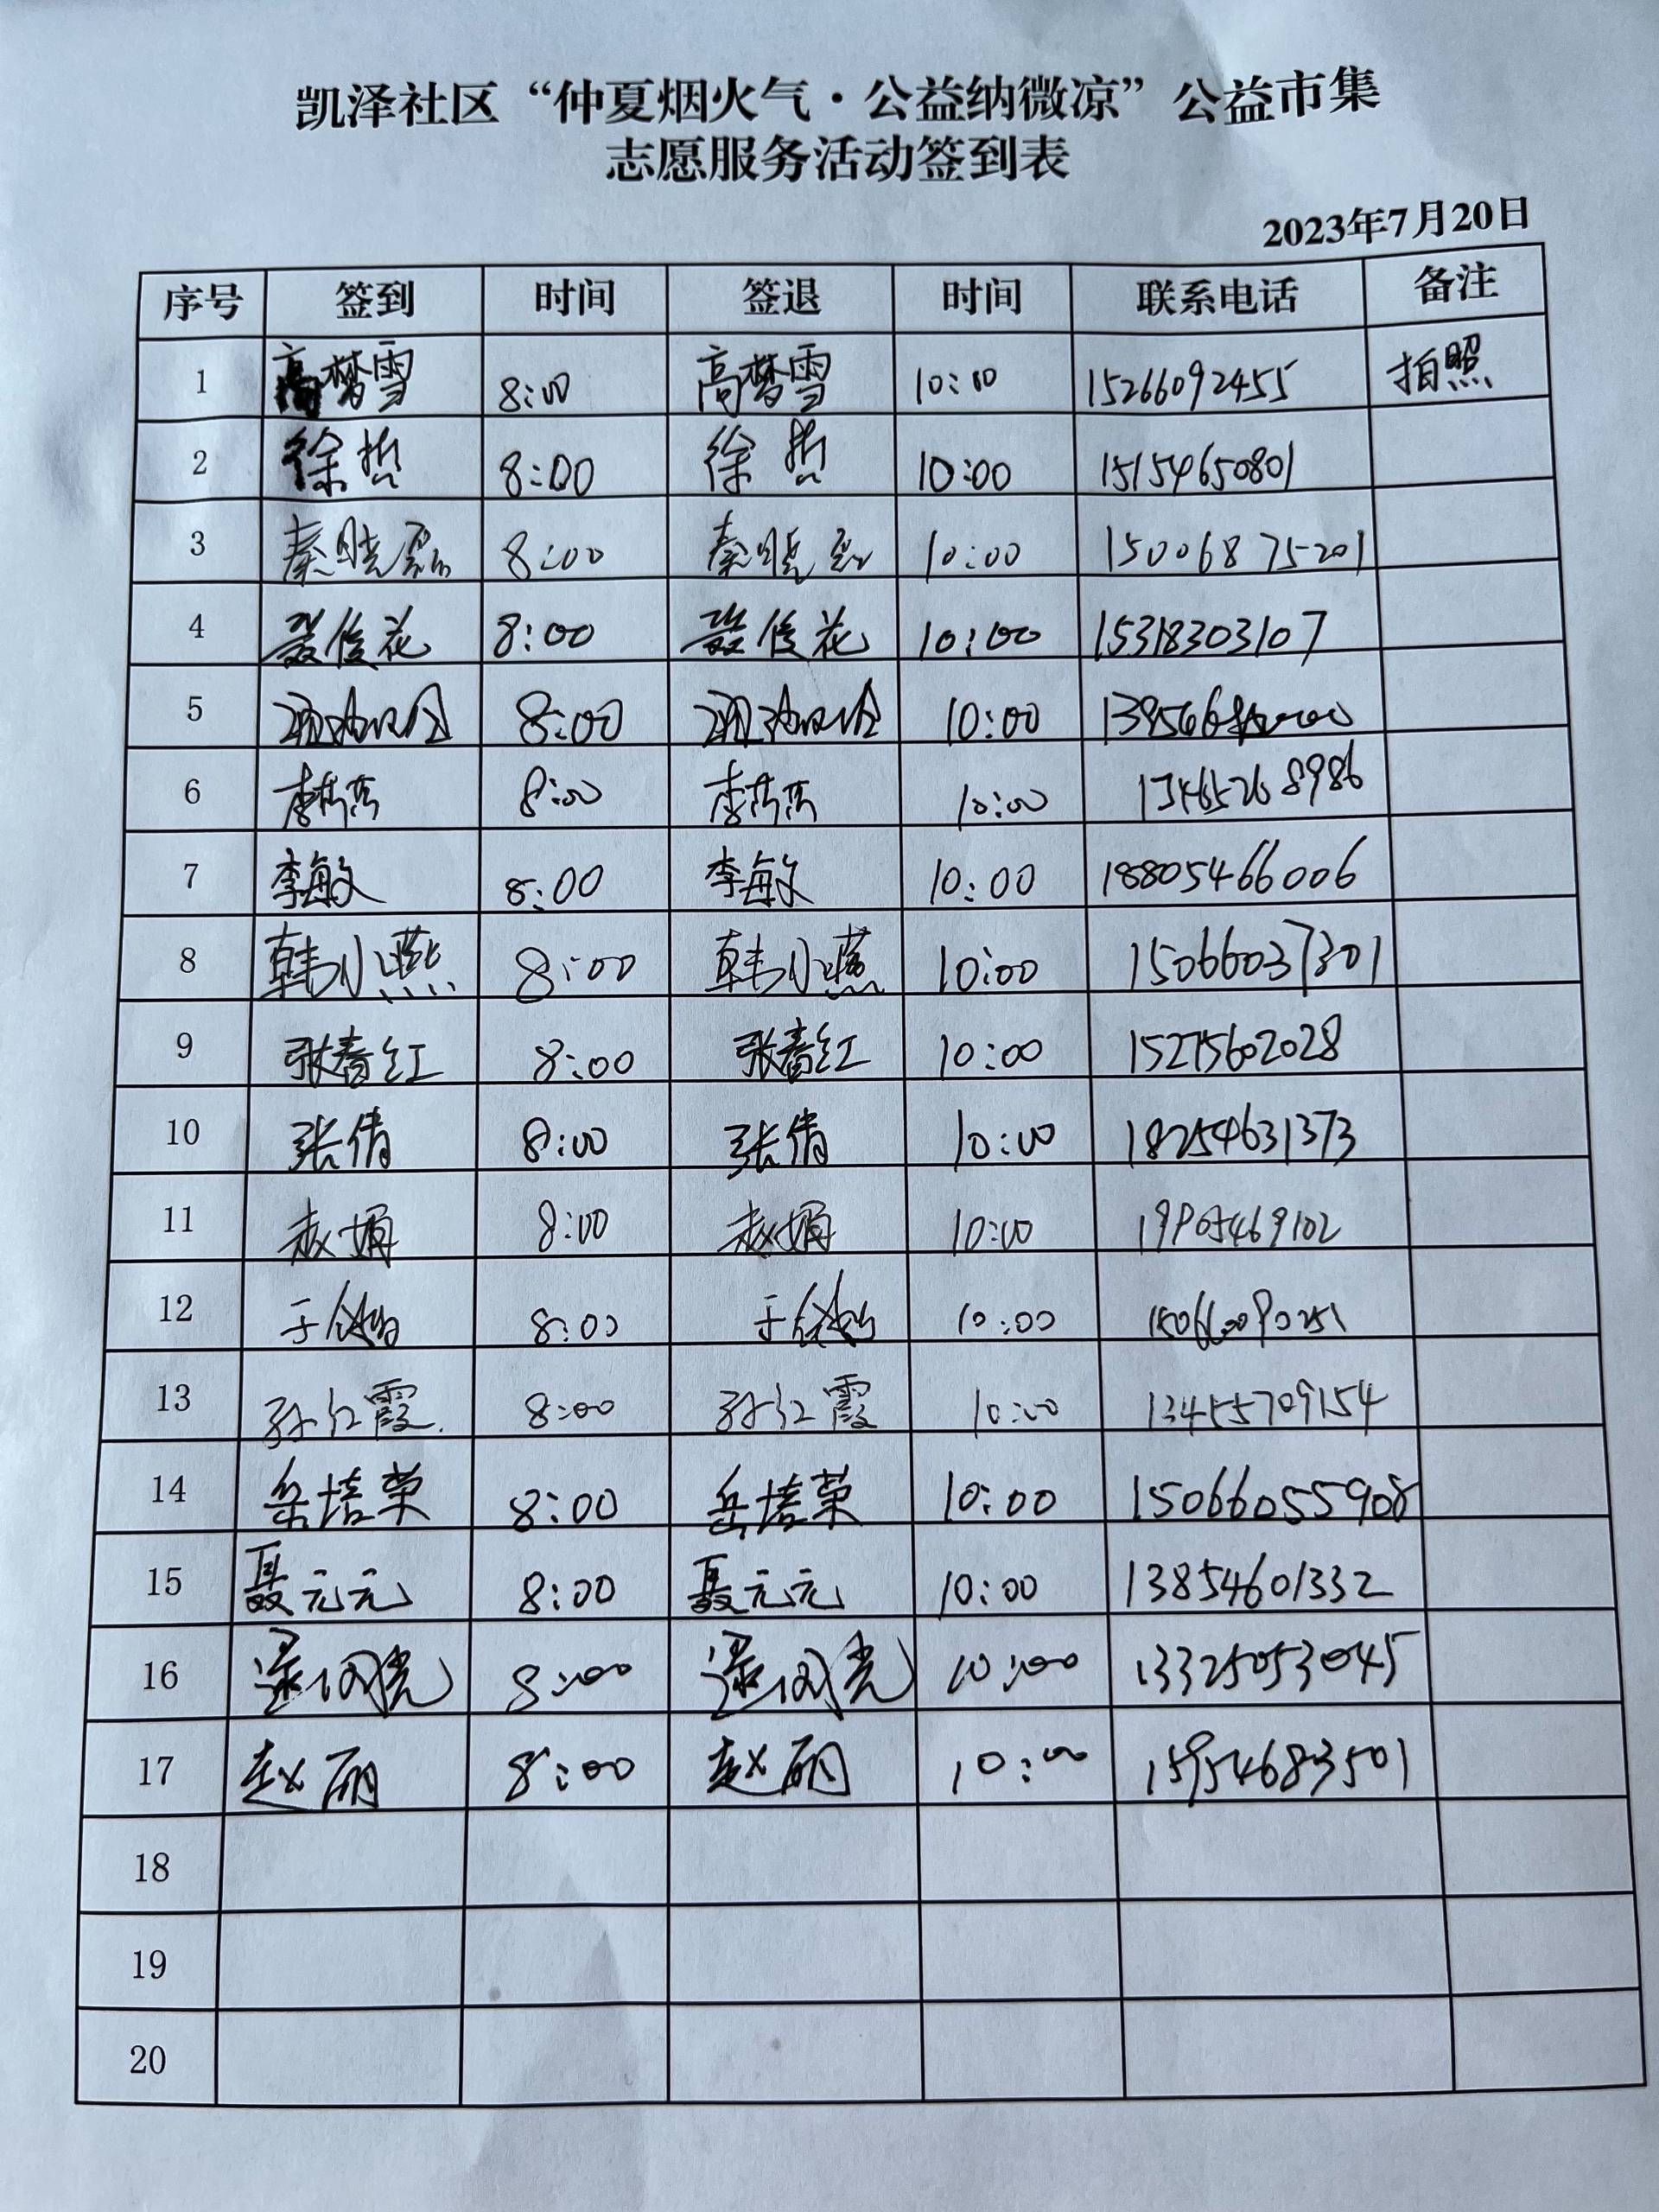 凯泽社区“仲夏烟火气·公益纳微凉”公益市集
志愿服务活动签到表
2023年7月20日
序号 签到 时间 签退 时间 联系电话 备注
1 高梦雪 8:00 高梦雪 10:00 15266092455 拍照
2 徐哲 8:00 徐哲 10:00 15154650801
3 秦晓磊 8:00 秦晓磊 10:00 15006875201
4 聂俊花 8:00 聂俊花 10:00 15318303107
5 8:00 10:00
6 8:00 10:00 13465268986
7 李敏 8:00 李敏 10:00 18805466006
8 韩小燕 8:00 韩小燕 10:00 15066037301
9 张春红 8:00 张春红 10:00 15275602028
10 张倩 8:00 张倩 10:00 18254631373
11 赵娟 8:00 赵娟 10:00 19905469102
12 8:00 10:00 15066090251
13 孙红霞 8:00 孙红霞 10:00 13455709154
14 岳培荣 8:00 岳培荣 10:00 15066055908
15 聂元元 8:00 聂元元 10:00 13854601332
16 8:00 10:00 13325053045
17 赵丽 8:00 赵丽 10:00 15954683501
18
19
20